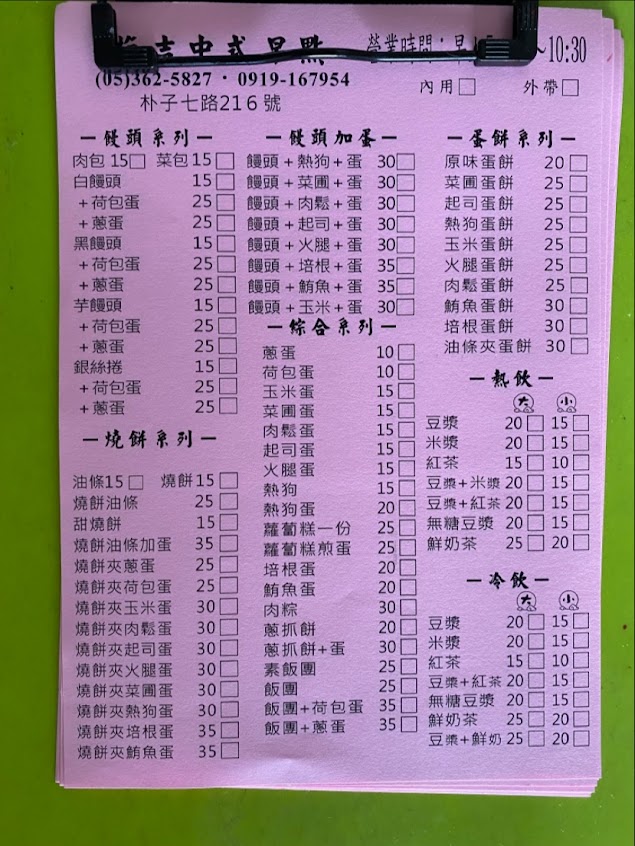 吉中式早點
營業時間:早
~10:30
(05)362-5827·0919-167954
內用□ 外帶□
朴子七路216號
－饅頭系列－
肉包 15□ 菜包15□
白饅頭 15□
+荷包蛋 25□
+蔥蛋 25□
黑饅頭 15□
+荷包蛋 25□
+蔥蛋 25□
芋饅頭 15□
+荷包蛋 25□
+蔥蛋 25□
銀絲捲 15□
+荷包蛋 25□
+蔥蛋 25□
－燒餅系列－
油條15□ 燒餅15□
燒餅油條 25□
甜燒餅 15□
燒餅油條加蛋 35□
燒餅夾蔥蛋 25□
燒餅夾荷包蛋 25□
燒餅夾玉米蛋 30□
燒餅夾肉鬆蛋 30□
燒餅夾起司蛋 30□
燒餅夾火腿蛋 30□
燒餅夾菜圃蛋 30□
燒餅夾熱狗蛋 30□
燒餅夾培根蛋 35□
燒餅夾鮪魚蛋 35□
－饅頭加蛋－
饅頭+熱狗+蛋 30□
饅頭+菜圃+蛋 30□
饅頭+肉鬆+蛋 30□
饅頭+起司+蛋 30□
饅頭+火腿+蛋 30□
饅頭+培根+蛋 35□
饅頭+鮪魚+蛋 35□
饅頭+玉米+蛋 30□
－綜合系列－
蔥蛋 10□
荷包蛋 10□
玉米蛋 15□
菜圃蛋 15□
肉鬆蛋 15□
起司蛋 15□
火腿蛋 15□
熱狗 15□
熱狗蛋 20□
蘿蔔糕一份 25□
蘿蔔糕煎蛋 25□
培根蛋 20□
鮪魚蛋 20□
肉粽 30□
蔥抓餅 20□
蔥抓餅+蛋 30□
素飯團 25□
飯團 25□
飯團+荷包蛋 35□
飯團+蔥蛋 35□
－蛋餅系列－
原味蛋餅 20□
菜圃蛋餅 25□
起司蛋餅 25□
熱狗蛋餅 25□
玉米蛋餅 25□
火腿蛋餅 25□
肉鬆蛋餅 25□
鮪魚蛋餅 30□
培根蛋餅 30□
油條夾蛋餅 30□
－熱飲－
大 小
豆漿 20□ 15□
米漿 20□ 15□
紅茶 15□ 10□
豆漿+米漿 20□ 15□
豆漿+紅茶 20□ 15□
無糖豆漿 20□ 15□
鮮奶茶 25□ 20□
－冷飲－
大 小
豆漿 20□ 15□
米漿 20□ 15□
紅茶 15□ 10□
豆漿+紅茶 20□ 15□
無糖豆漿 20□ 15□
鮮奶茶 25□ 20□
豆漿+鮮奶 25□ 20□